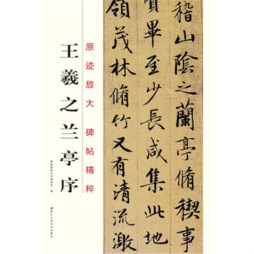 稽山陰之蘭亭脩稧事
畢至少長咸集此地
領茂林脩竹又有清流激
原迹放大 碑帖精粹
王羲之兰亭序